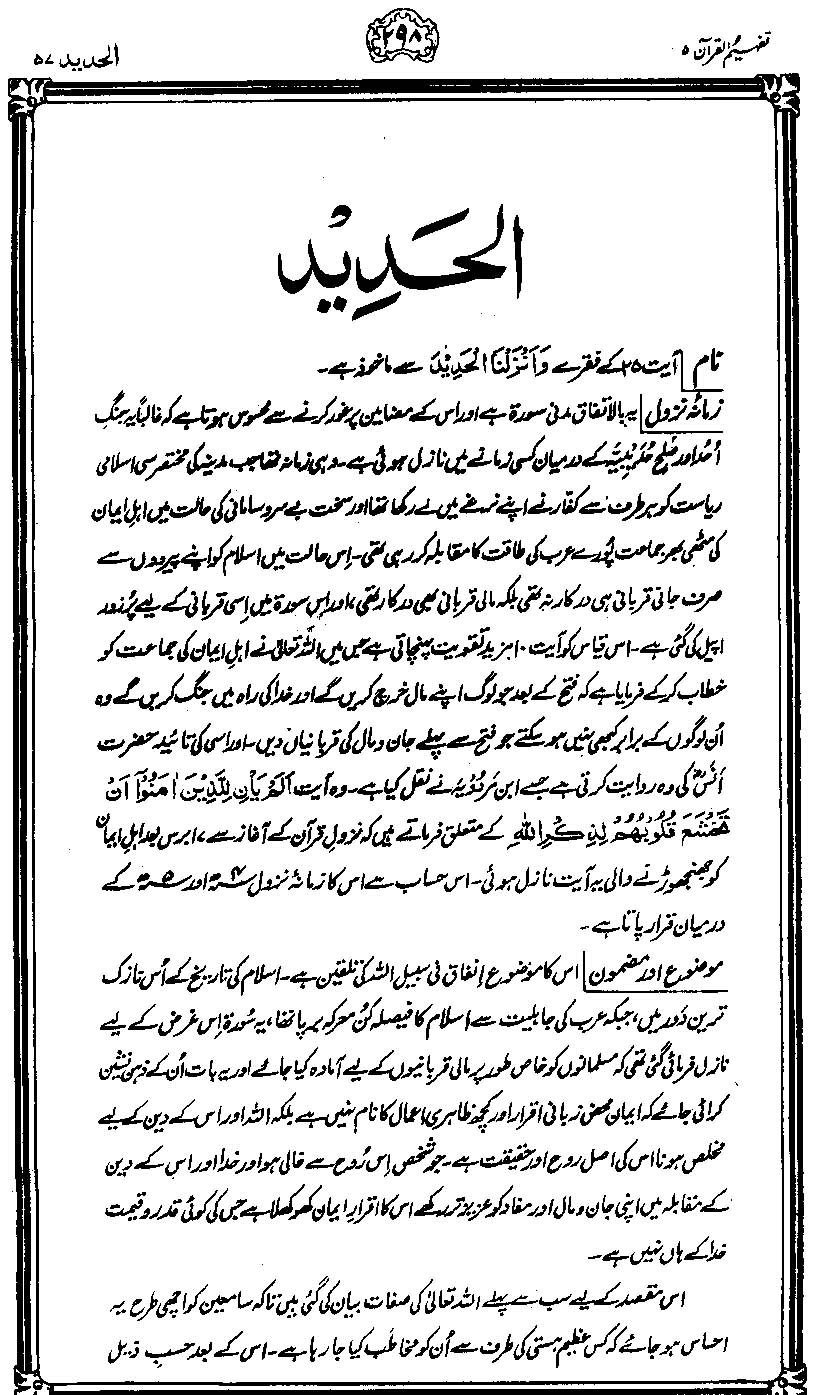 تفہیم القرآن ۵
۲۹۸
الحدید ۵۷
الحَدِیْد
نام آیت ۲۵ کے فقرے وَاَنْزَلْنَا الْحَدِیْدَ سے ماخوذ ہے۔
زمانۂ نزول یہ بالاتفاق مدنی سورۃ ہے اور اس کے مضامین پر غور کرنے سے محسوس ہوتا ہے کہ غالباً یہ جنگِ
اُحُد اور صلح حُدَیْبِیَّہ کے درمیان کسی زمانے میں نازل ہوئی ہے۔ وہی زمانہ تھا جب مدینہ کی مختصر سی اسلامی
ریاست کو ہر طرف سے کفار نے اپنے نرغے میں لے رکھا تھا اور سخت بے سروسامانی کی حالت میں اہلِ ایمان
کی مٹھی بھر جماعت پُورے عرب کی طاقت کا مقابلہ کر رہی تھی۔ اِس حالت میں اسلام کو اپنے پیرووں سے
صرف جانی قربانی ہی درکار نہ تھی بلکہ مالی قربانی بھی درکار تھی، اور اِس سورۃ میں اِسی قربانی کے لیے پُر زور
اپیل کی گئی ہے۔ اس قیاس کو آیت ۱۰ مزید تقویت پہنچاتی ہے جس میں اللہ تعالیٰ نے اہلِ ایمان کی جماعت کو
خطاب کر کے فرمایا ہے کہ فتح کے بعد جو لوگ اپنے مال خرچ کریں گے اور خدا کی راہ میں جنگ کریں گے وہ
اُن لوگوں کے برابر کبھی نہیں ہو سکتے جو فتح سے پہلے جان و مال کی قربانیاں دیں۔ اور اسی کی تائید حضرت
اَنَسؓ کی وہ روایت کرتی ہے جسے ابن مَرْدُوْیَہ نے نقل کیا ہے۔ وہ آیت اَلَمْ یَاْنِ لِلَّذِیْنَ اٰمَنُوْٓا اَنْ
تَخْشَعَ قُلُوْبُھُمْ لِذِکْرِ اللّٰہِ کے متعلق فرماتے ہیں کہ نزولِ قرآن کے آغاز سے ۱۷ برس بعد اہلِ ایمان
کو جھنجھوڑنے والی یہ آیت نازل ہوئی۔ اس حساب سے اس کا زمانۂ نزول ۴ھ اور ۵ھ کے
درمیان قرار پاتا ہے۔
موضوع اور مضمون اس کا موضوع اِنفاق فی سبیل اللہ کی تلقین ہے۔ اسلام کی تاریخ کے اُس نازک
ترین دَور میں، جبکہ عرب کی جاہلیت سے اسلام کا فیصلہ کُن معرکہ برپا تھا، یہ سُورۃ اِس غرض کے لیے
نازل فرمائی گئی تھی کہ مسلمانوں کو خاص طور پر مالی قربانیوں کے لیے آمادہ کیا جائے اور یہ بات اُن کے ذہن نشین
کرائی جائے کہ ایمان محض زبانی اقرار اور کچھ ظاہری اعمال کا نام نہیں ہے بلکہ اللہ اور اس کے دین کے لیے
مخلص ہونا اس کی اصل روح اور حقیقت ہے۔ جو شخص اِس رُوح سے خالی ہو اور خدا اور اس کے دین
کے مقابلہ میں اپنی جان و مال اور مفاد کو عزیز تر رکھے اس کا اقرارِ ایمان کھوکھلا ہے جس کی کوئی قدر و قیمت
خدا کے ہاں نہیں ہے۔
اس مقصد کے لیے سب سے پہلے اللہ تعالیٰ کی صفات بیان کی گئی ہیں تاکہ سامعین کو اچھی طرح یہ
احساس ہو جائے کہ کس عظیم ہستی کی طرف سے اُن کو مخاطب کیا جا رہا ہے۔ اس کے بعد حسبِ ذیل